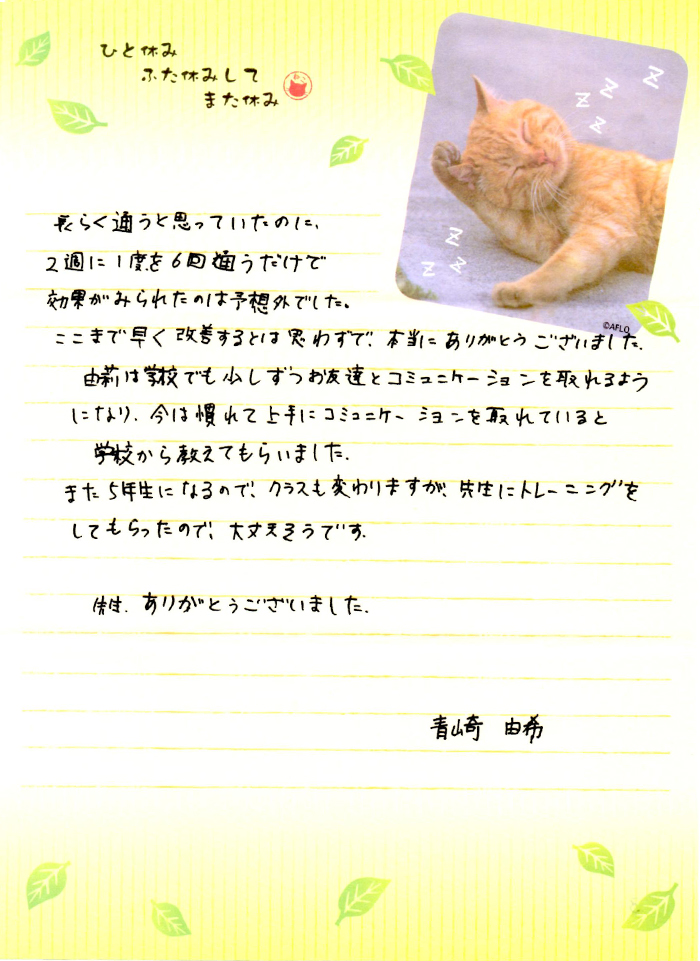 ひと休み
ふた休みして
また休み
z z z z
z z z
©AFLO
長らく通うと思っていたのに、
2週に1度を6回通うだけで
効果がみられたのは予想外でした。
ここまで早く改善するとは思わずで、本当にありがとうございました。
由莉は学校でも少しずつお友達とコミュニケーションを取れるよう
になり、今は慣れて上手にコミュニケーションを取れていると
学校から教えてもらいました。
また5年生になるので、クラスも変わりますが、先生にトレーニングを
してもらったので、大丈夫そうです。
先生、ありがとうございました。
青山奇 由希